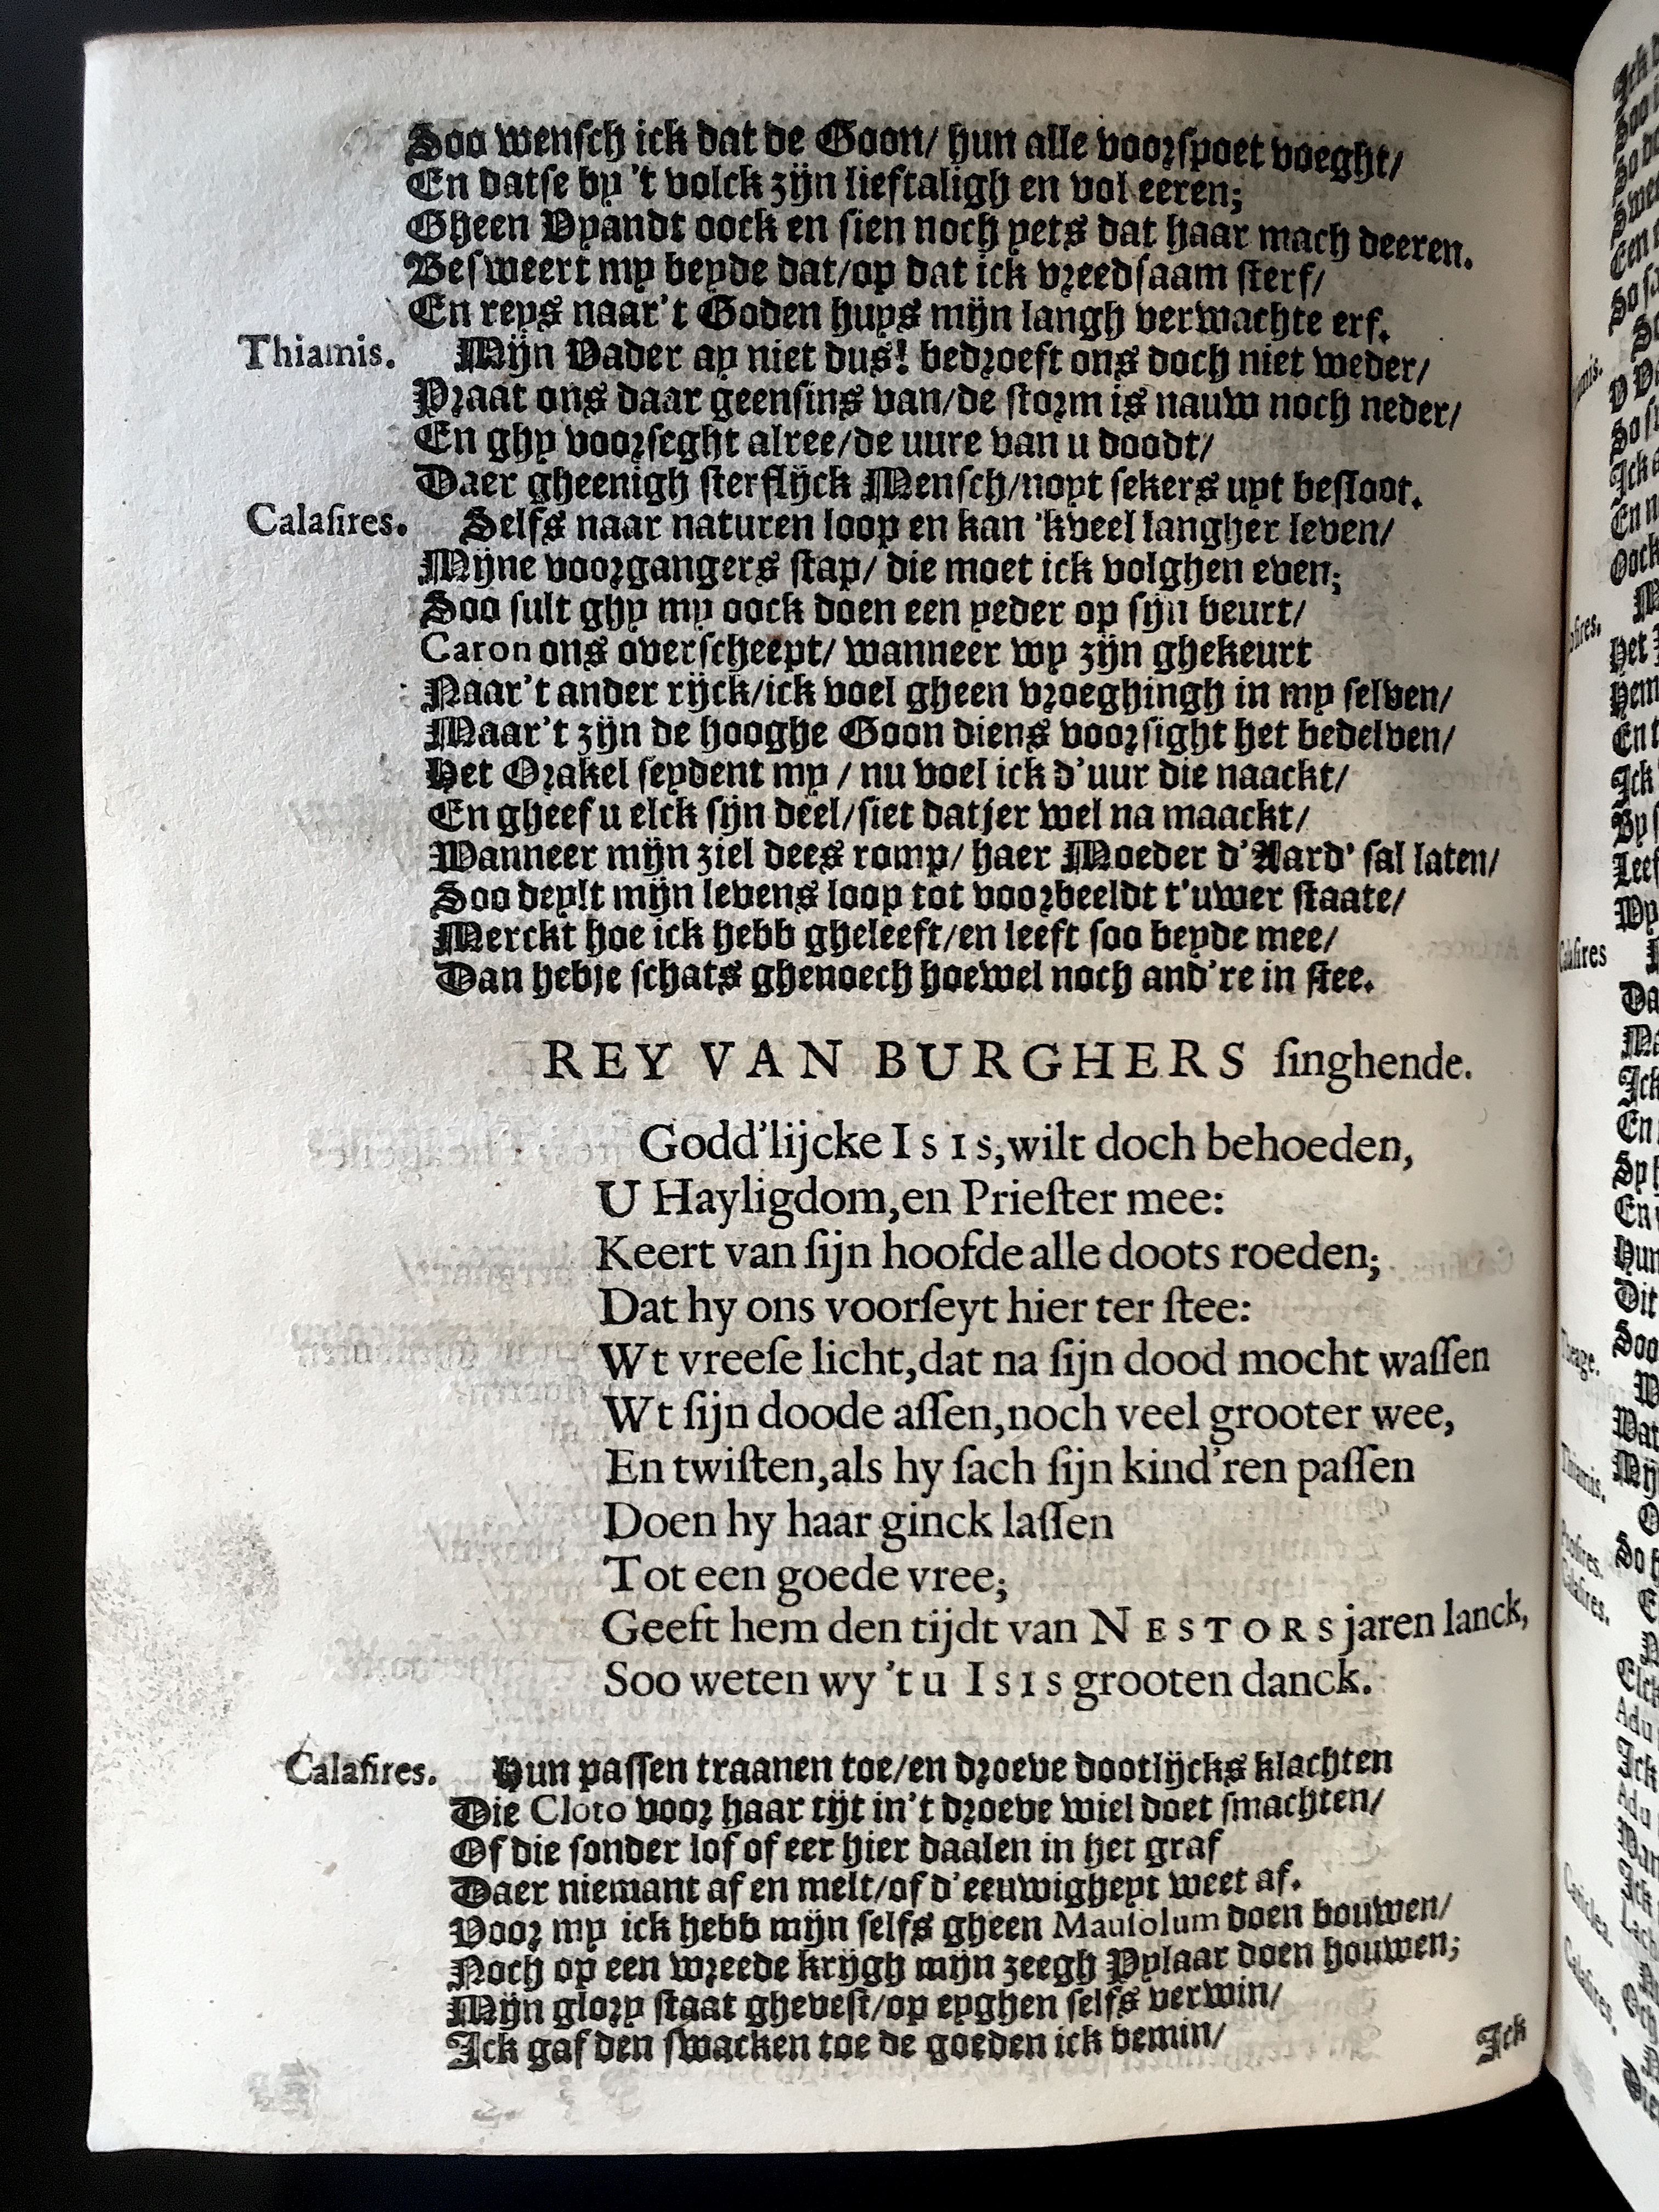 Soo wensch ick dat de Goon/ hun alle voorspoet voeght/
En datse by 't volck zijn lieftaligh en vol eeren;
Gheen Vyandt oock en sien noch yets dat haar mach deeren.
Besweert my beyde dat/op dat ick vreedsaam sterf/
En reys naar't Goden huys mijn langh verwachte erf.
Thiamis. Mijn Vader ay niet dus! bedroeft ons doch niet weder/
Praat ons daar geensins van/de storm is nauw noch neder/
En ghy voorseght alree/de uure van u doodt/
Daer gheenigh sterflijck Mensch/noyt sekers uyt besloot.
Calasires. Selfs naar naturen loop en kan 'kveel langher leven/
Mijne voorgangers stap/ die moet ick volghen even;
Soo sult ghy my oock doen een yeder op sijn beurt/
Caron ons overscheept/ wanneer wy zijn ghekeurt
Naar't ander rijck/ick voel gheen vroeghingh in my selven/
Maar't zijn de hooghe Goon diens voorsight het bedelven/
Het Orakel seydent my / nu voel ick d'uur die naackt/
En gheef u elck sijn deel/siet datjer wel na maackt/
Wanneer mijn ziel dees romp/ haer Moeder d'Aard' sal laten/
Soo deylt mijn levens loop tot voorbeeldt t'uwer staate/
Merckt hoe ick hebb gheleeft/en leeft soo beyde mee/
Dan hebje schats ghenoech hoewel noch and're in stee.
REY VAN BURGHERS singhende.
Godd'lijcke ISIS, wilt doch behoeden,
U Hayligdom, en Priester mee:
Keert van sijn hoofde alle doots roeden;
Dat hy ons voorseyt hier ter stee:
Wt vreese licht, dat na sijn dood mocht wassen
Wt sijn doode assen, noch veel grooter wee,
En twisten, als hy sach sijn kind'ren passen
Doen hy haar ginck lassen
Tot een goede vree;
Geeft hem den tijdt van NESTORS jaren lanck,
Soo weten wy 't u ISIS grooten danck.
Calasires. Hun passen traanen toe/en droeve dootlijcks klachten
Die Cloto voor haar tijt in't droeve wiel doet smachten/
Of die sonder lof of eer hier daalen in het graf
Daer niemant af en melt/of d'eeuwigheyt weet af.
Voor my ick hebb mijn selfs gheen Mausolum doen bouwen/
Noch op een wreede krijgh mijn zeegh Pylaar doen houwen;
Mijn glory staat ghevest/op eyghen selfs verwin/
Ick gaf den swacken toe de goeden ick bemin/
Ick